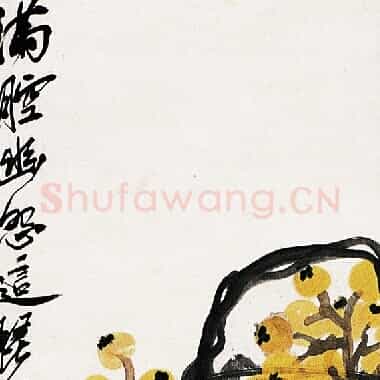 满腔幽怨這
Shufawang.CN